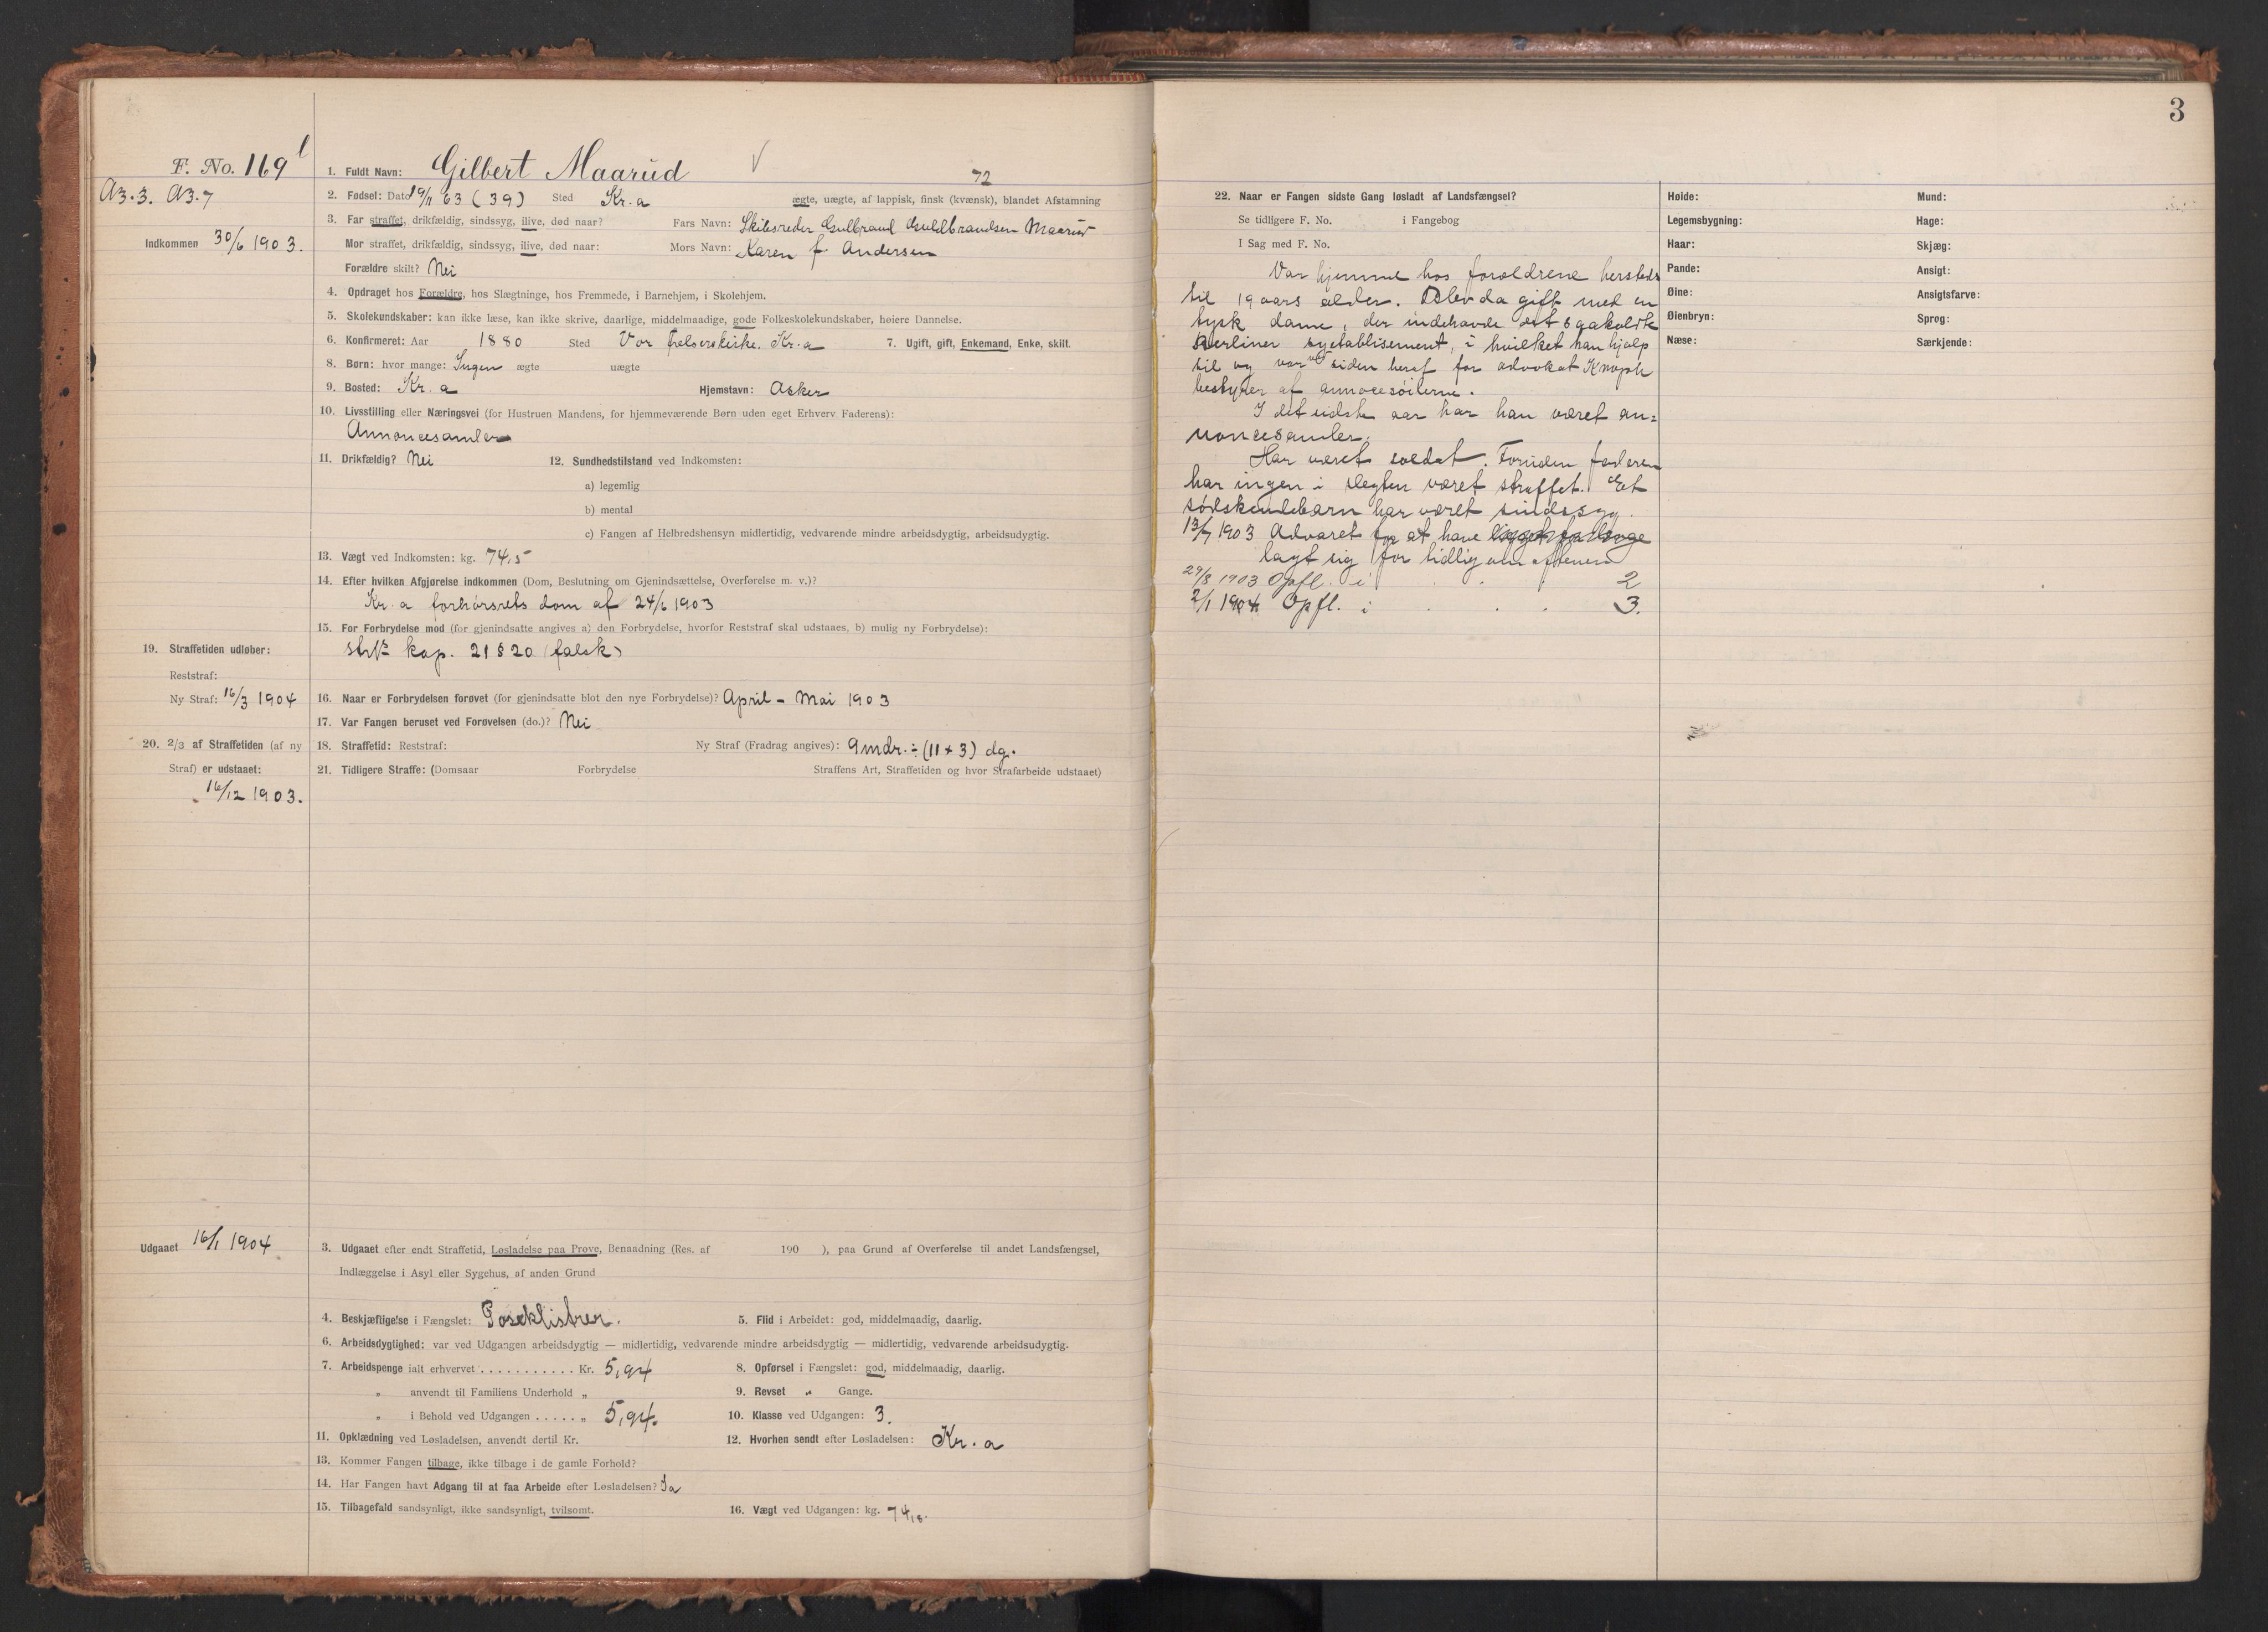 3
F. No. 169
A3.3. A3.7
Indkommen 30/6 1903.
1. Fuldt Navn: Gilbert Maarud
72
2. Fødsel: Dato 19/11 63 (39) Sted Kr.a ægte, uægte, af lappisk, finsk (kvænsk), blandet Afstamning
3. Far straffet, drikfældig, sindssyg, ilive, død naar? Fars Navn: Skibsreder Gulbrand Guldbrandsen Maarud
Mor straffet, drikfældig, sindssyg, ilive, død naar: Mors Navn: Karen f. Andersen
Forældre skilt? Nei
4. Opdraget hos Forældre, hos Slægtninge, hos Fremmede, i Barnehjem, i Skolehjem.
5. Skolekundskaber: kan ikke læse, kan ikke skrive, daarlige, middelmaadige, gode Folkeskolekundskaber, høiere Dannelse.
6. Konfirmeret: Aar 1880 Sted Vor frelserskirke. Kr.a 7. Ugift, gift, Enkemand, Enke, skilt.
8. Børn: hvor mange: Ingen ægte uægte
9. Bosted: Kr.a Hjemstavn: Asker
10. Livsstilling eller Næringsvei (for Hustruen Mandens, for hjemmeværende Børn uden eget Erhverv Faderens):
Annoncesamler
11. Drikfældig? Nei 12. Sundhedstilstand ved Indkomsten:
a) legemlig
b) mental
c) Fangen af Helbredshensyn midlertidig, vedvarende mindre arbeidsdygtig, arbeidsudygtig.
13. Vægt ved Indkomsten: kg. 74,5
14. Efter hvilken Afgjørelse indkommen (Dom, Beslutning om Gjenindsættelse, Overførelse m. v.)?
Kr.a forhørsrets dom af 24/6 1903
15. For Forbrydelse mod (for gjenindsatte angives a) den Forbrydelse, hvorfor Reststraf skal udstaaes, b) mulig ny Forbrydelse):
kap. 21 § 20 (falsk)
19. Straffetiden udløber:
Reststraf:
Ny Straf: 16/3 1904
16. Naar er Forbrydelsen forøvet (for gjenindsatte blot den nye Forbrydelse)? April - Mai 1903
17. Var Fangen beruset ved Forøvelsen (do.)? Nei
20. 2/3 af Straffetiden (af ny
Straf) er udstaaet:
16/12 1903.
18. Straffetid: Reststraf: Ny Straf (Fradrag angives): 9 mdr. ÷ (11 + 3) dg.
21. Tidligere Straffe: (Domsaar Forbrydelse Straffens Art, Straffetiden og hvor Strafarbeide udstaaet)
Udgaaet 16/1 1904
3. Udgaaet efter endt Straffetid, Løsladelse paa Prøve, Benaadning (Res. af 190 ), paa Grund af Overførelse til andet Landsfængsel,
Indlæggelse i Asyl eller Sygehus, af anden Grund
4. Beskjæftigelse i Fængslet: Poseklistrer. 5. Flid i Arbeidet: god, middelmaadig, daarlig.
6. Arbeidsdygtighed: var ved Udgangen arbeidsdygtig — midlertidig, vedvarende mindre arbeidsdygtig — midlertidig, vedvarende arbeidsudygtig.
7. Arbeidspenge ialt erhvervet . . . . . . . . . . . Kr. 5,94 8. Opførsel i Fængslet: god, middelmaadig, daarlig.
„ anvendt til Familiens Underhold „ 9. Revset „ Gange.
„ i Behold ved Udgangen . . . . . „ 5,94. 10. Klasse ved Udgangen: 3.
11. Opklædning ved Løsladelsen, anvendt dertil Kr. 12. Hvorhen sendt efter Løsladelsen: Kr.a
13. Kommer Fangen tilbage, ikke tilbage i de gamle Forhold?
14. Har Fangen havt Adgang til at faa Arbeide efter Løsladelsen? Ja
15. Tilbagefald sandsynligt, ikke sandsynligt, tvilsomt. 16. Vægt ved Udgangen: kg. 74,8.
22. Naar er Fangen sidste Gang løsladt af Landsfængsel?
Se tidligere F. No. i Fangebog
I Sag med F. No.
Var hjemme hos forældrene hersteds
til 19 aars alder. Blev da gift med en
tysk dame, der indehavde det saakaldte
Berliner syetablisement, i hvilket han hjalp
til og var ved siden heraf for advokat Knoph
bestyrer af annoncesøilerne.
I det sidste aar har han været an=
noncesamler.
Har været soldat. Foruden faderen
har ingen i slegten været straffet. Et
sødskendebarn har været sindssyg.
13/7 1903 Advaret for at have ligget for længe
lagt sig for tidlig om aftenen
29/8 1903 Opfl. i . . . 2
2/1 1904 Opfl. i . . . 3.
Høide: Mund:
Legemsbygning: Hage:
Haar: Skjæg:
Pande: Ansigt:
Øine: Ansigtsfarve:
Øienbryn: Sprog:
Næse: Særkjende: